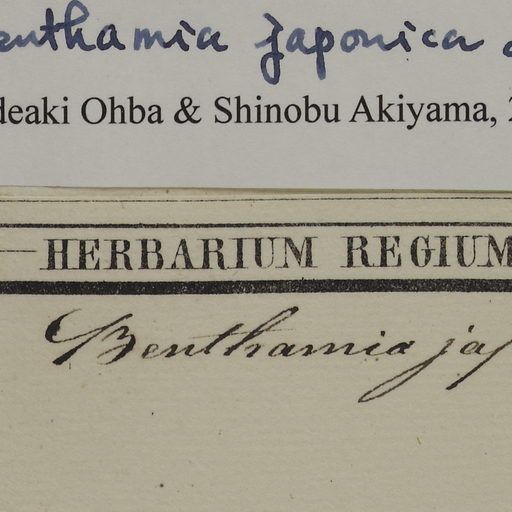 enthamia japonica
deaki Ohba & Shinobu Akiyama, 2
HERBARIUM REGIUM
Benthamia jap